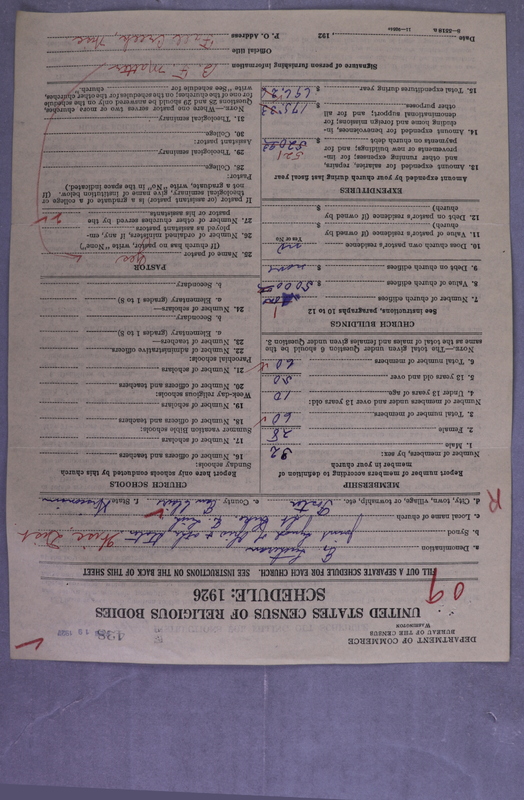 DEPARTMENT OF COMMERCE
BUREAU OF THE CENSUS
WASHINGTON
438
UNITED STATES CENSUS OF RELIGIOUS BODIES
SCHEDULE: 1926
09
FILL OUT A SEPARATE SCHEDULE FOR EACH CHURCH. SEE INSTRUCTIONS ON THE BACK OF THIS SHEET
a. Denomination Ev. Lutheran
b. Synod Joint Synod of Ohio & other States
c. Local name of church
d. City, town, village, or township, etc. e. County Eau Claire f. State Wisconsin
R
MEMBERSHIP
Report number of members according to definition of
member in your church
Number of members, by sex:
1. Male 32
2. Female 28
3. Total number of members 60
Number of members under and over 13 years old:
4. Under 13 years of age 10
5. 13 years old and over 50
6. Total number of members 60
NOTE.—The total given under Question 6 should be the
same as the total of males and females given under Question 3.
CHURCH BUILDINGS
See instructions, paragraphs 10 to 12
7. Number of church edifices 1
8. Value of church edifices $ 5000
9. Debt on church edifices $ none
10. Does church own pastor's residence no
Yes or No
11. Value of pastor's residence (if owned by
church) $
12. Debt on pastor's residence (if owned by
church) $
EXPENDITURES
Amount expended by your church during last fiscal year
13. Amount expended for salaries, repairs,
and other running expenses; for im-
provements or new buildings; and for
payments on church debt $ 521
14. Amount expended for benevolences, in-
cluding home and foreign missions; for
denominational support; and for all
other purposes $ 175.33
15. Total expenditures during year $ 696
CHURCH SCHOOLS
Report here only schools conducted by this church
Sunday schools:
16. Number of officers and teachers
17. Number of scholars
Summer vacation Bible schools:
18. Number of officers and teachers
19. Number of scholars
Week-day religious schools:
20. Number of officers and teachers
21. Number of scholars
Parochial schools:
22. Number of administrative officers
23. Number of teachers—
a. Elementary (grades 1 to 8)
b. Secondary
24. Number of scholars—
a. Elementary (grades 1 to 8)
b. Secondary
PASTOR
25. Name of pastor yes
(If church has no pastor, write "None")
26. Number of ordained ministers, if any, em-
ployed as assistant pastors
27. Number of other churches served by the
pastor or his assistants 2
If pastor (or assistant pastor) is a graduate of a college or
theological seminary, give name of institution below. (If
not a graduate, write "No" in the space indicated.)
Pastor:
28. College
29. Theological seminary
Assistant pastor:
30. College
31. Theological seminary
NOTE.—Where one pastor serves two or more churches,
Questions 25 and 29 should be answered only on the schedule
for one of the churches; on the schedules for the other churches,
write "See schedule for church."
Signature of person furnishing information
Official title
Date 192 P. O. Address Fall Creek, Wis